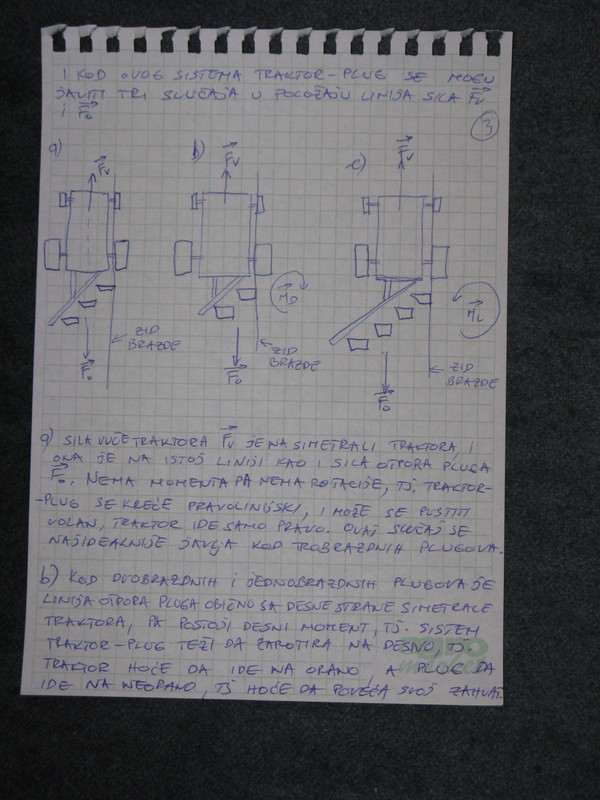 I KOD OVOG SISTEMA TRAKTOR-PLUG SE MOGU
JAVITI TRI SLUČAJA U POLOŽAJU LINIJA SILA Fv
I Fo
3
a)
b)
c)
Fv
Fv
Fv
MD
ML
ZID
BRAZDE
ZID
BRAZDE
ZID
BRAZDE
Fo
Fo
Fo
a) SILA VUČE TRAKTORA Fv JE NA SIMETRALI TRAKTORA, I
ONA JE NA ISTOJ LINIJI KAO I SILA OTPORA PLUGA
Fo. NEMA MOMENTA PA NEMA ROTACIJE, TJ. TRAKTOR-
-PLUG SE KREĆE PRAVOLINIJSKI, I MOŽE SE PUSTITI
VOLAN, TRAKTOR IDE SAMO PRAVO. OVAJ SLUČAJ SE
NAJIDEALNIJE JAVLJA KOD TROBRAZDNIH PLUGOVA.
b) KOD DVOBRAZDNIH I JEDNOBRAZDNIH PLUGOVA JE
LINIJA OTPORA PLUGA OBIČNO SA DESNE STRANE SIMETRALE
TRAKTORA, PA POSTOJI DESNI MOMENT, TJ. SISTEM
TRAKTOR-PLUG TEŽI DA ZAROTIRA NA DESNO, TJ.
TRAKTOR HOĆE DA IDE NA ORANO, A PLUG DA
IDE NA NEORANO, TJ HOĆE DA POVEĆA SVOJ ZAHVAT.